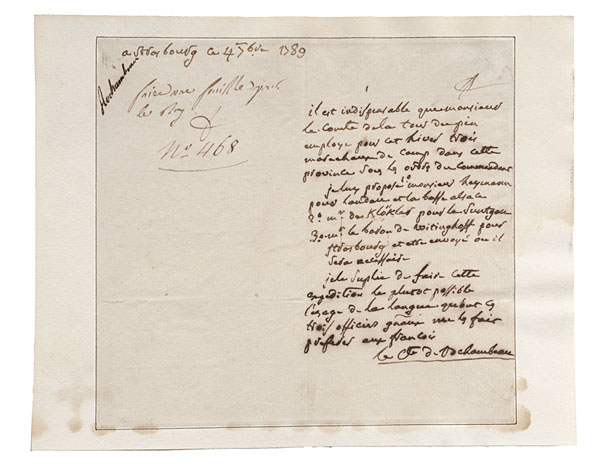 a strasbourg ce 4 7bre 1789
Rochambeau
faire une feuille
le Roy
D
N° 468
il est indispensable que monsieur
le Comte de la tour du pin
employe pour cet hiver trois
marechaux de Camp dans cette
province sous les ordres du Commandant
je luy propose 1° monsieur heymann
pour landau et la basse alsace
2° mr. de Klökler pour le Suntgau
3° mr. le baron de witinghoff pour
strasbourg et etre envoyé ou il
sera necessaire
je le suplie de faire cette
expedition le plutot possible
l'usage de la langue qu'ont ces
trois officiers gñaux me les fait
preferer aux francois
le Cte de Rochambeau